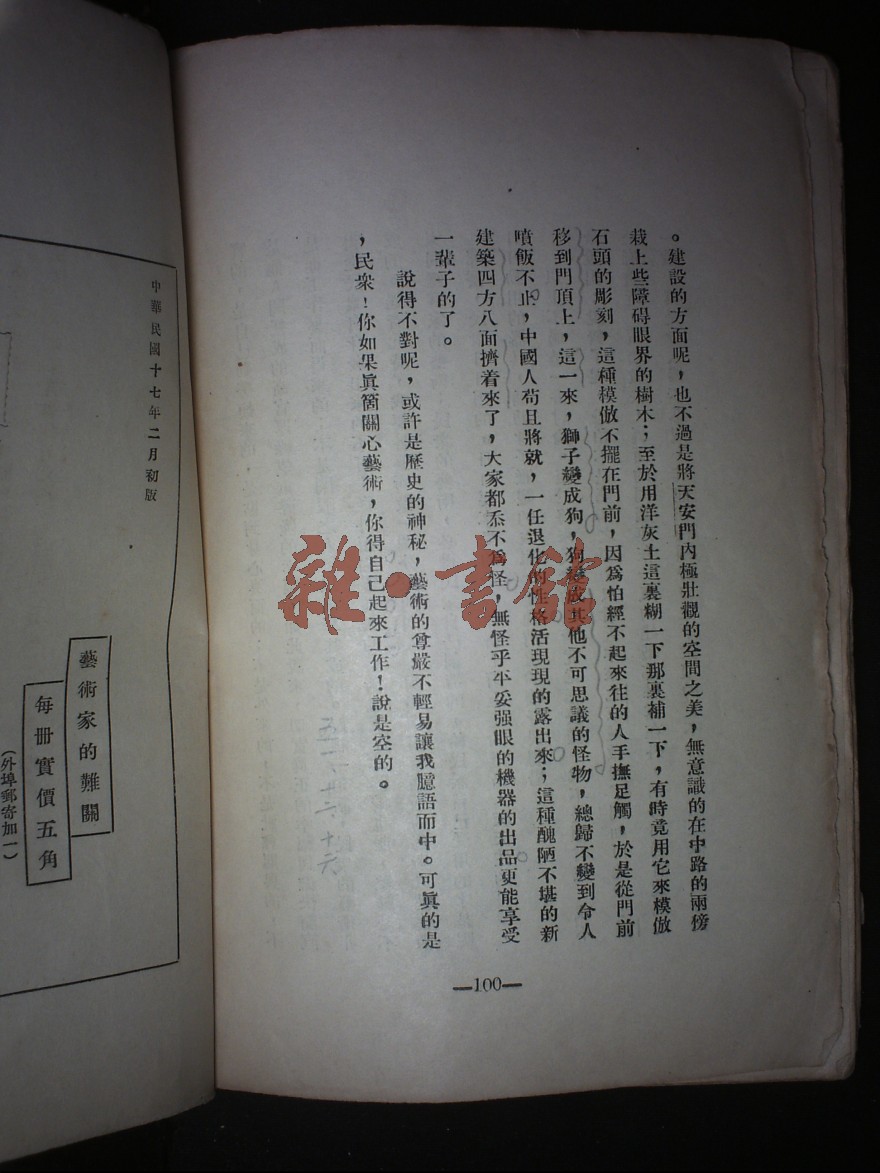 。建設的方面呢，也不過是將天安門內極壯觀的空間之美，無意識的在中路的兩傍
栽上些障碍眼界的樹木；至於用洋灰土這裏糊一下那裏補一下，有時竟用它來模倣
石頭的彫刻，這種模倣不擺在門前，因爲怕經不起來往的人手撫足觸，於是從門前
移到門頂上，這一來，獅子變成狗，狗變成其他不可思議的怪物，總歸不變到令人
噴飯不止，中國人苟且將就，一任退化的性格活現現的露出來；這種醜陋不堪的新
建築四方八面擠着來了，大家都忝不爲怪，無怪乎平妥强眼的機器的出品更能享受
一輩子的了。
說得不對呢，或許是歷史的神秘，藝術的尊嚴不輕易讓我臆語而中。可眞的是
，民衆！你如果眞箇關心藝術，你得自己起來工作！說是空的。
—100—
雜·書館
中華民國十七年二月初版
藝術家的難關
每册實價五角
（外埠郵寄加一）